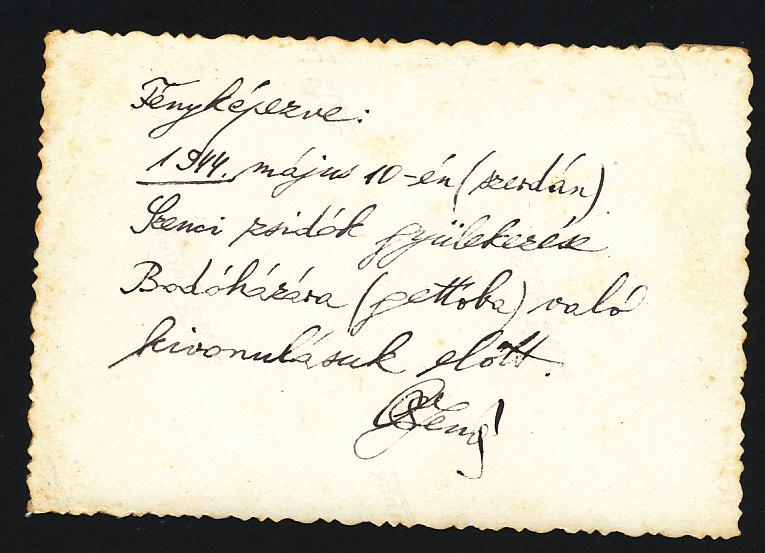 Fényképezve:
1944. május 10-én (szerdán)
Szenci zsidók gyülekezése
Bodóházára (gettoba) való
kivonulásuk előtt.
Jenő